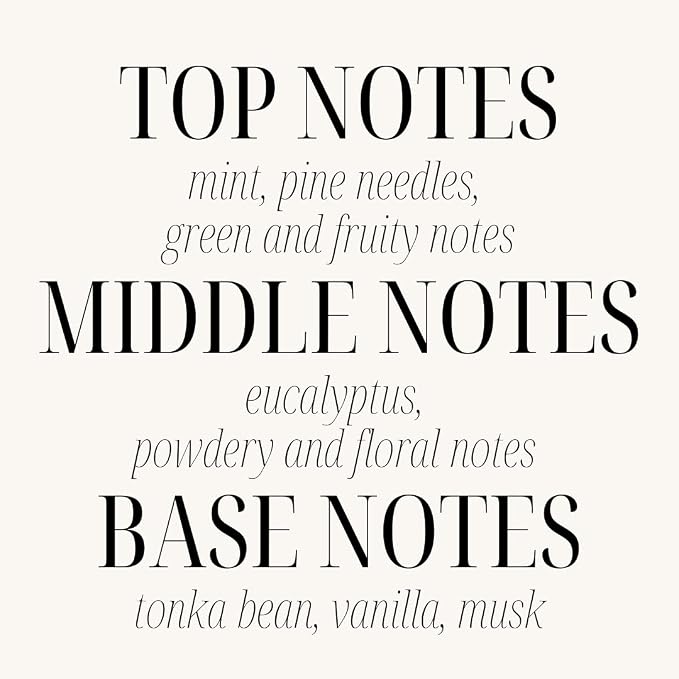 TOP NOTES
mint, pine needles,
green and fruity notes
MIDDLE NOTES
eucalyptus,
powdery and floral notes
BASE NOTES
tonka bean, vanilla, musk